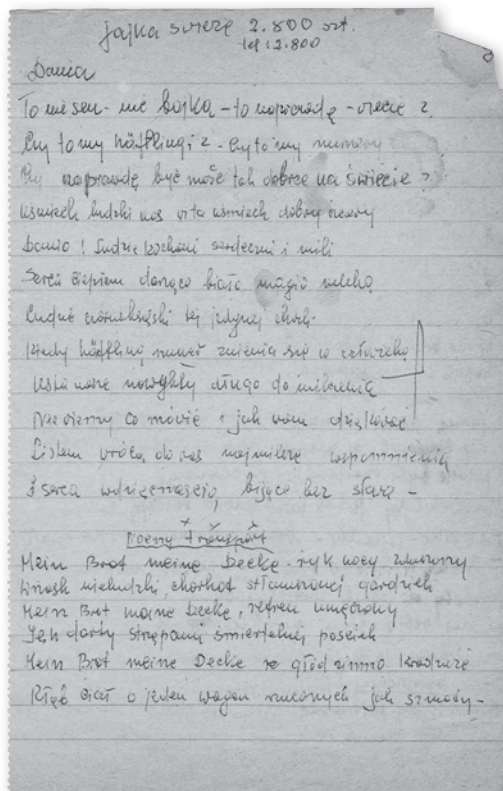 jajka świeże 2.800 szt.
2.800
Dania
To nie sen - nie bajka - to naprawdę -
Czy to my häftlingi? - Czy to my numery
Czy naprawdę być może tak dobrze na świecie?
Uśmiech ludzki nas wita uśmiech dobry szczery
Danio! Ludzie kochani serdeczni i mili
Serca ciepłem darząco białą magią
tej jedynej chwili
Kiedy häftling numer zmienia się w człowieka
Usta nasze nawykły długo do milczenia
Nie wiemy co mówić i jak wam dziękować
Listem wrócą do was najmilsze wspomnienia
I serca wdzięcznością, bijące bez słowa -
Nocny transport
Mein Brot meine Decke - ryk nocy
Wrzask nieludzki, charkot stłamszonej gardzieli
Mein Brot meine Decke, refren umęczony
Jęk darty strzępami śmiertelnej pościeli
Mein Brot meine Decke głód zimno kradzież
Kłąb ciał o jeden wagon rzuconych jak szmaty -